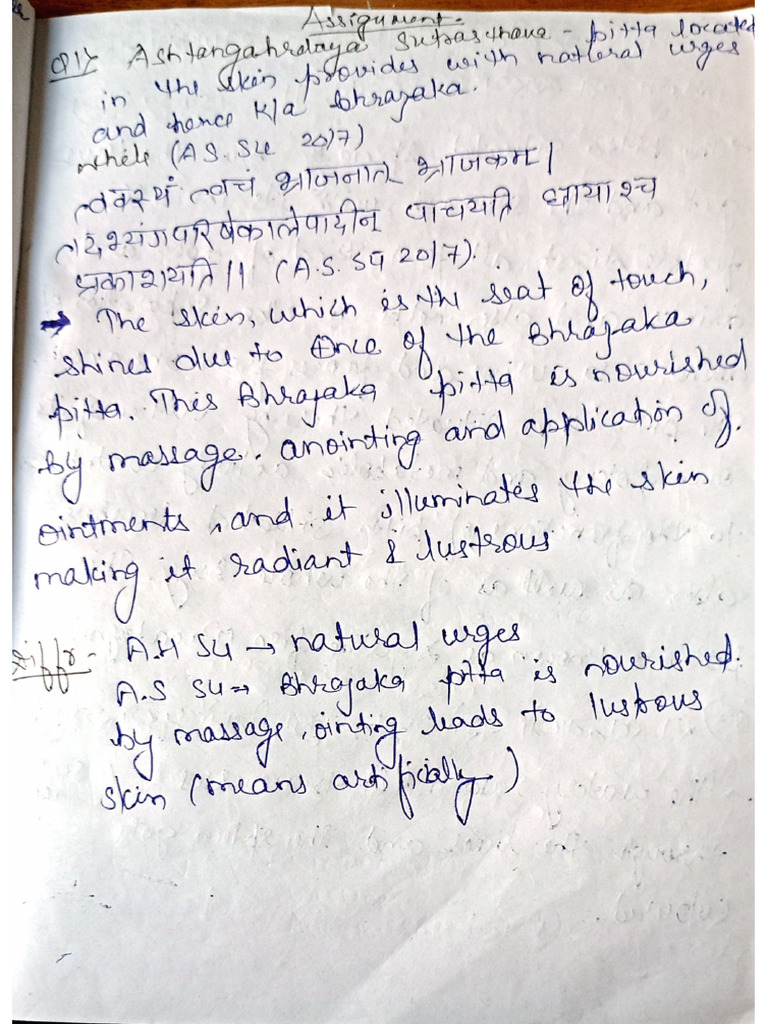 Assignment.
Q1) Ashtangahrdaya Sutrasthana - pitta located
in the skin provides with natural urges
and hence K/a bhrajaka.
while (A S. SU 20/7)
त्वक्स्थं त्वचं भ्राजनात् भ्राजकम।
तदभ्यंगपरिषेकालेपादीन पाचयति छायाश्च
प्रकाशयति।। (A.S. SU 20/7).
→ The skin, which is the seat of touch,
shines due to of the Bhrajaka
pitta. This Bhrajaka pitta is nourished
by massage. anointing and application of.
ointments, and it illuminates the skin
making it radiant & lustrous
Diffr - A.H SU → natural urges
A.S SU → Bhrajaka pitta is nourished.
by massage, ointing leads to lustrous
skin (means artificially)